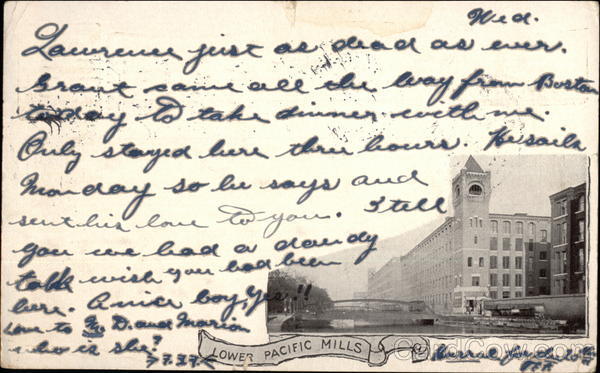 Wed.
Lawrence just as dead as ever.
Grant came all the way from Boston
today to take dinner with me.
Only stayed here thru hours. He sails
Monday so he says and
sent his love to you. I tell
you we had a dandy
talk wish you had been
here. A nice boy, Yes!!
Love to D. and Marion
who is she?
LOWER PACIFIC MILLS
CardCow.com